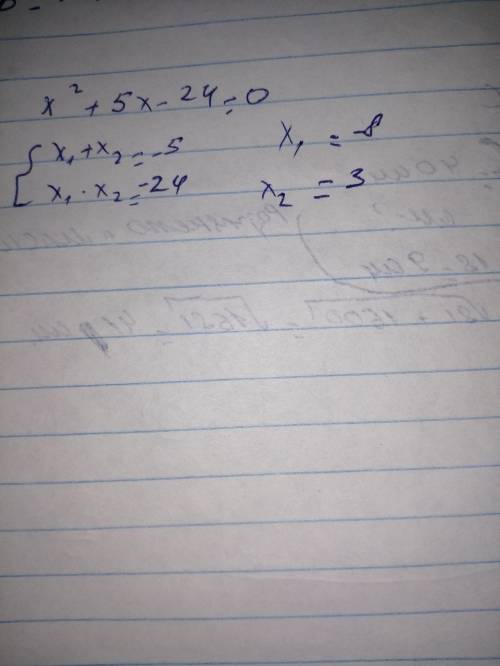 x² + 5x - 24 = 0
x₁ + x₂ = -5
x₁ · x₂ = -24
x₁ = -8
x₂ = 3